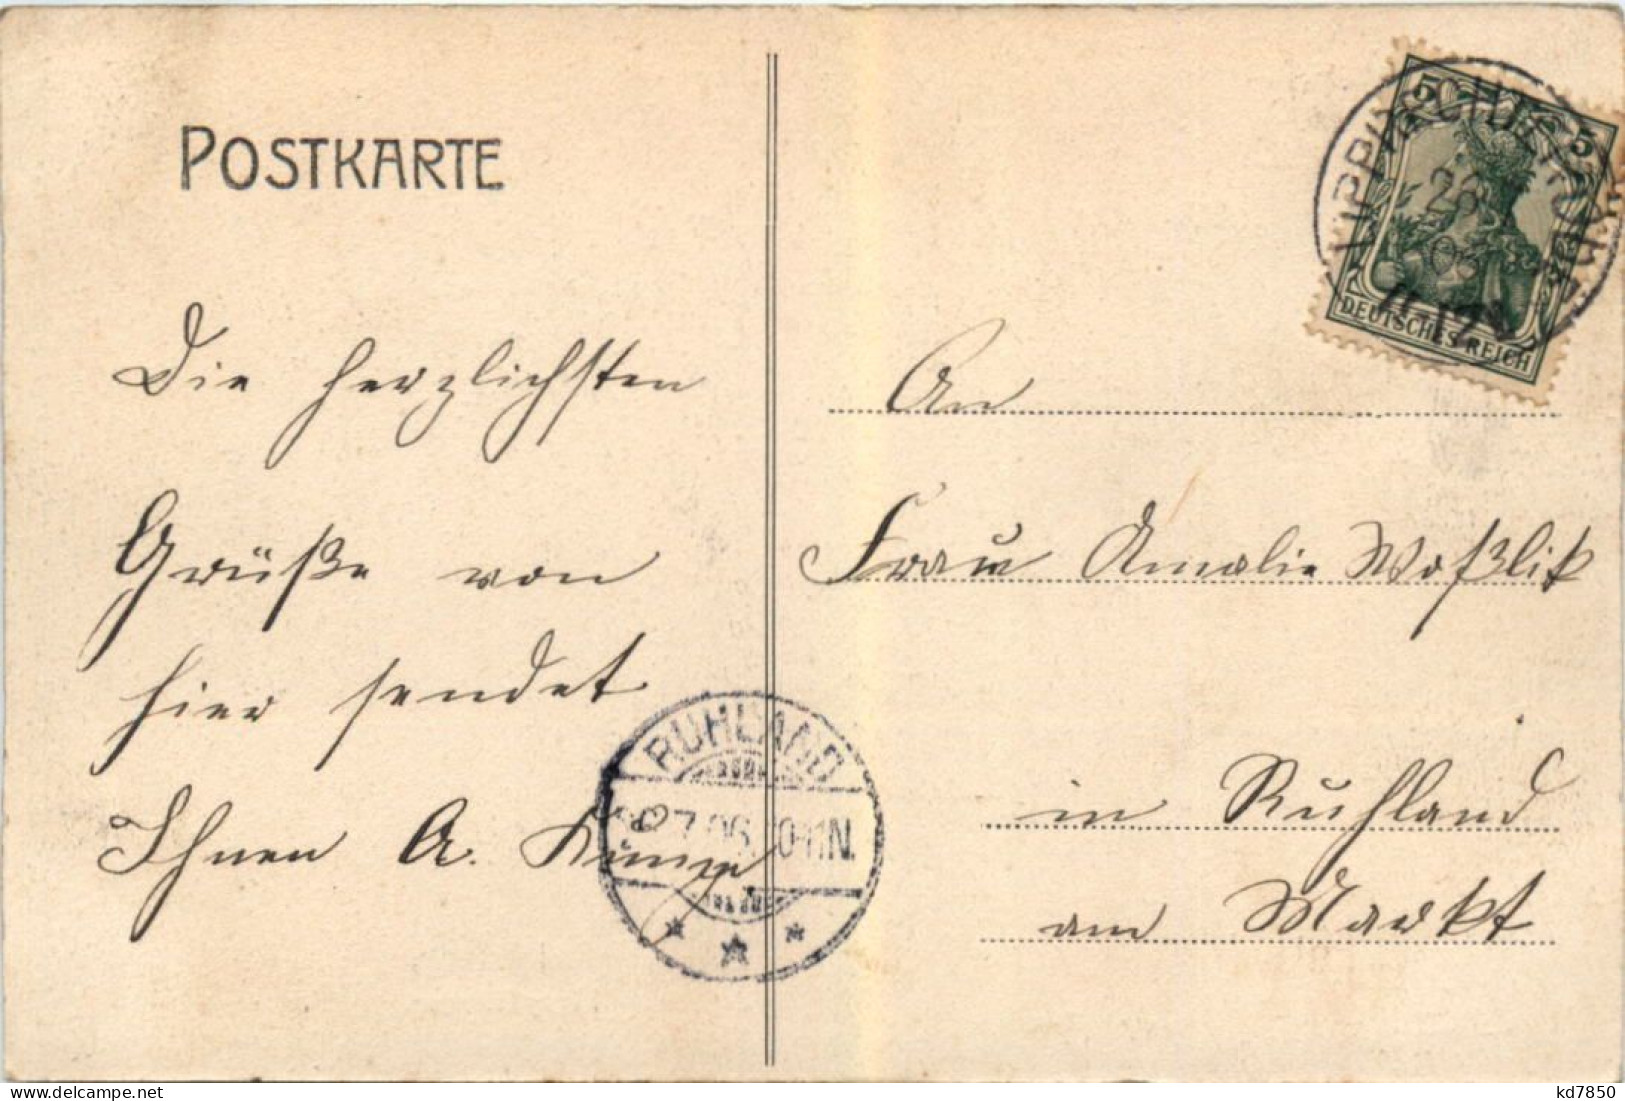 POSTKARTE
Die herzlichsten
Grüße von
hier sendet
Ihnen A. Kunze
An
Frau Amalie
in Ruhland
am Markt
5 5
DEUTSCHES REICH
26
11-12V
RUHLAND
27.06. 10-11N.
kd7850